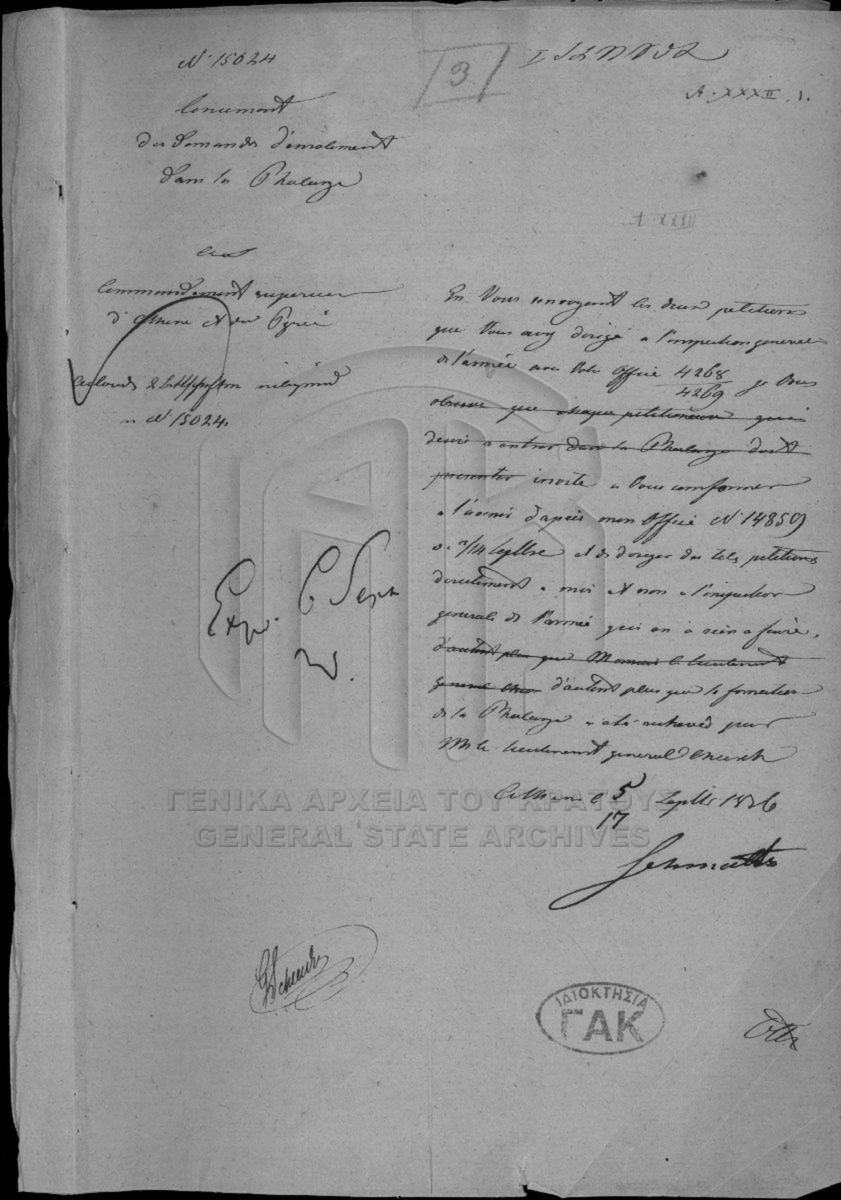 N. 15024
3
A. XXXII. 1.
Concernant
des Demandes d'enrolement
dans la Phalange
A XXXII
au
Commandement superieur
d'Athene et du Pyrée
N. 15024.
En Vous renvoyant les deux petitions
que Vous avez dirigé a l'inspection generale
de l'armée avec Votre Office 4268
4269 je Vous
observe que chaque petitioneur qui
desire a entrer dans la Phalange doit
presenter invite a Vous conformer
a l'avenir d'apres mon Office N. 14859
et de diriger des tels petitions
directement a moi et non a l'inspection
generale de l'armée qui en a rien a faire,
d'autant plus que Monsieur le lieutenant
general d'autant plus que la formation
de la Phalange a eté achevée par
Mr le lieutenant general Church
Athene le 5 Septbr 1836
17
Schmaltz
Exp. 6 Sept
ΓΕΝΙΚΑ ΑΡΧΕΙΑ ΤΟΥ ΚΡΑΤΟΥΣ
GENERAL STATE ARCHIVES
ΙΔΙΟΚΤΗΣΙΑ
ΓΑΚ